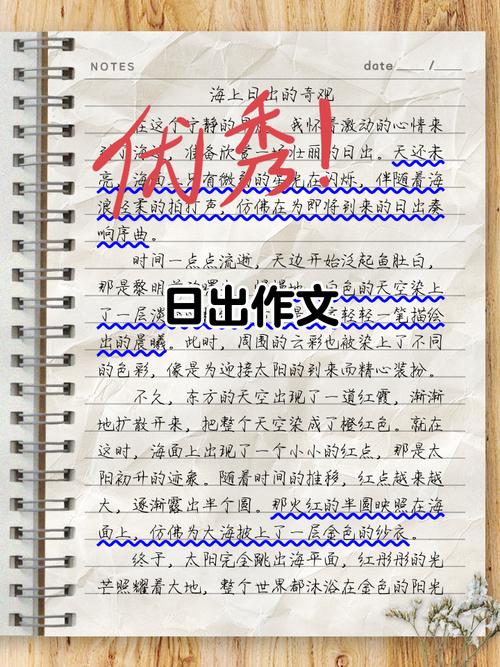 NOTES
date / 
海上日出的奇观
优秀!
在这个宁静的 我怀着激动的心情来
海 准备欣赏 场壮丽的日出。天还未
亮,海面 只有微弱的 光在闪烁,伴随着海
浪轻柔的拍打声,仿佛在为即将到来的日出奏
响序曲。
时间一点点流逝,天边开始泛起鱼肚白,
那是黎明 色的天空染上
日出作文
了一层淡 轻轻一笔描绘
出的晨曦。此时,周围的云彩也被染上了不同
的色彩,像是为迎接太阳的到来而精心装扮。
不久,东方的天空出现了一道红霞,渐渐
地扩散开来,把整个天空染成了橙红色。就在
这时,海面上出现了一个小小的红点,那是太
阳初升的迹象。随着时间的推移,红点越来越
大,逐渐露出半个圆。那火红的半圆映照在海
面上,仿佛为大海披上了一层金色的纱衣。
终于,太阳完全跳出海平面,红彤彤的光
芒照耀着大地,整个世界都沐浴在金色的阳光